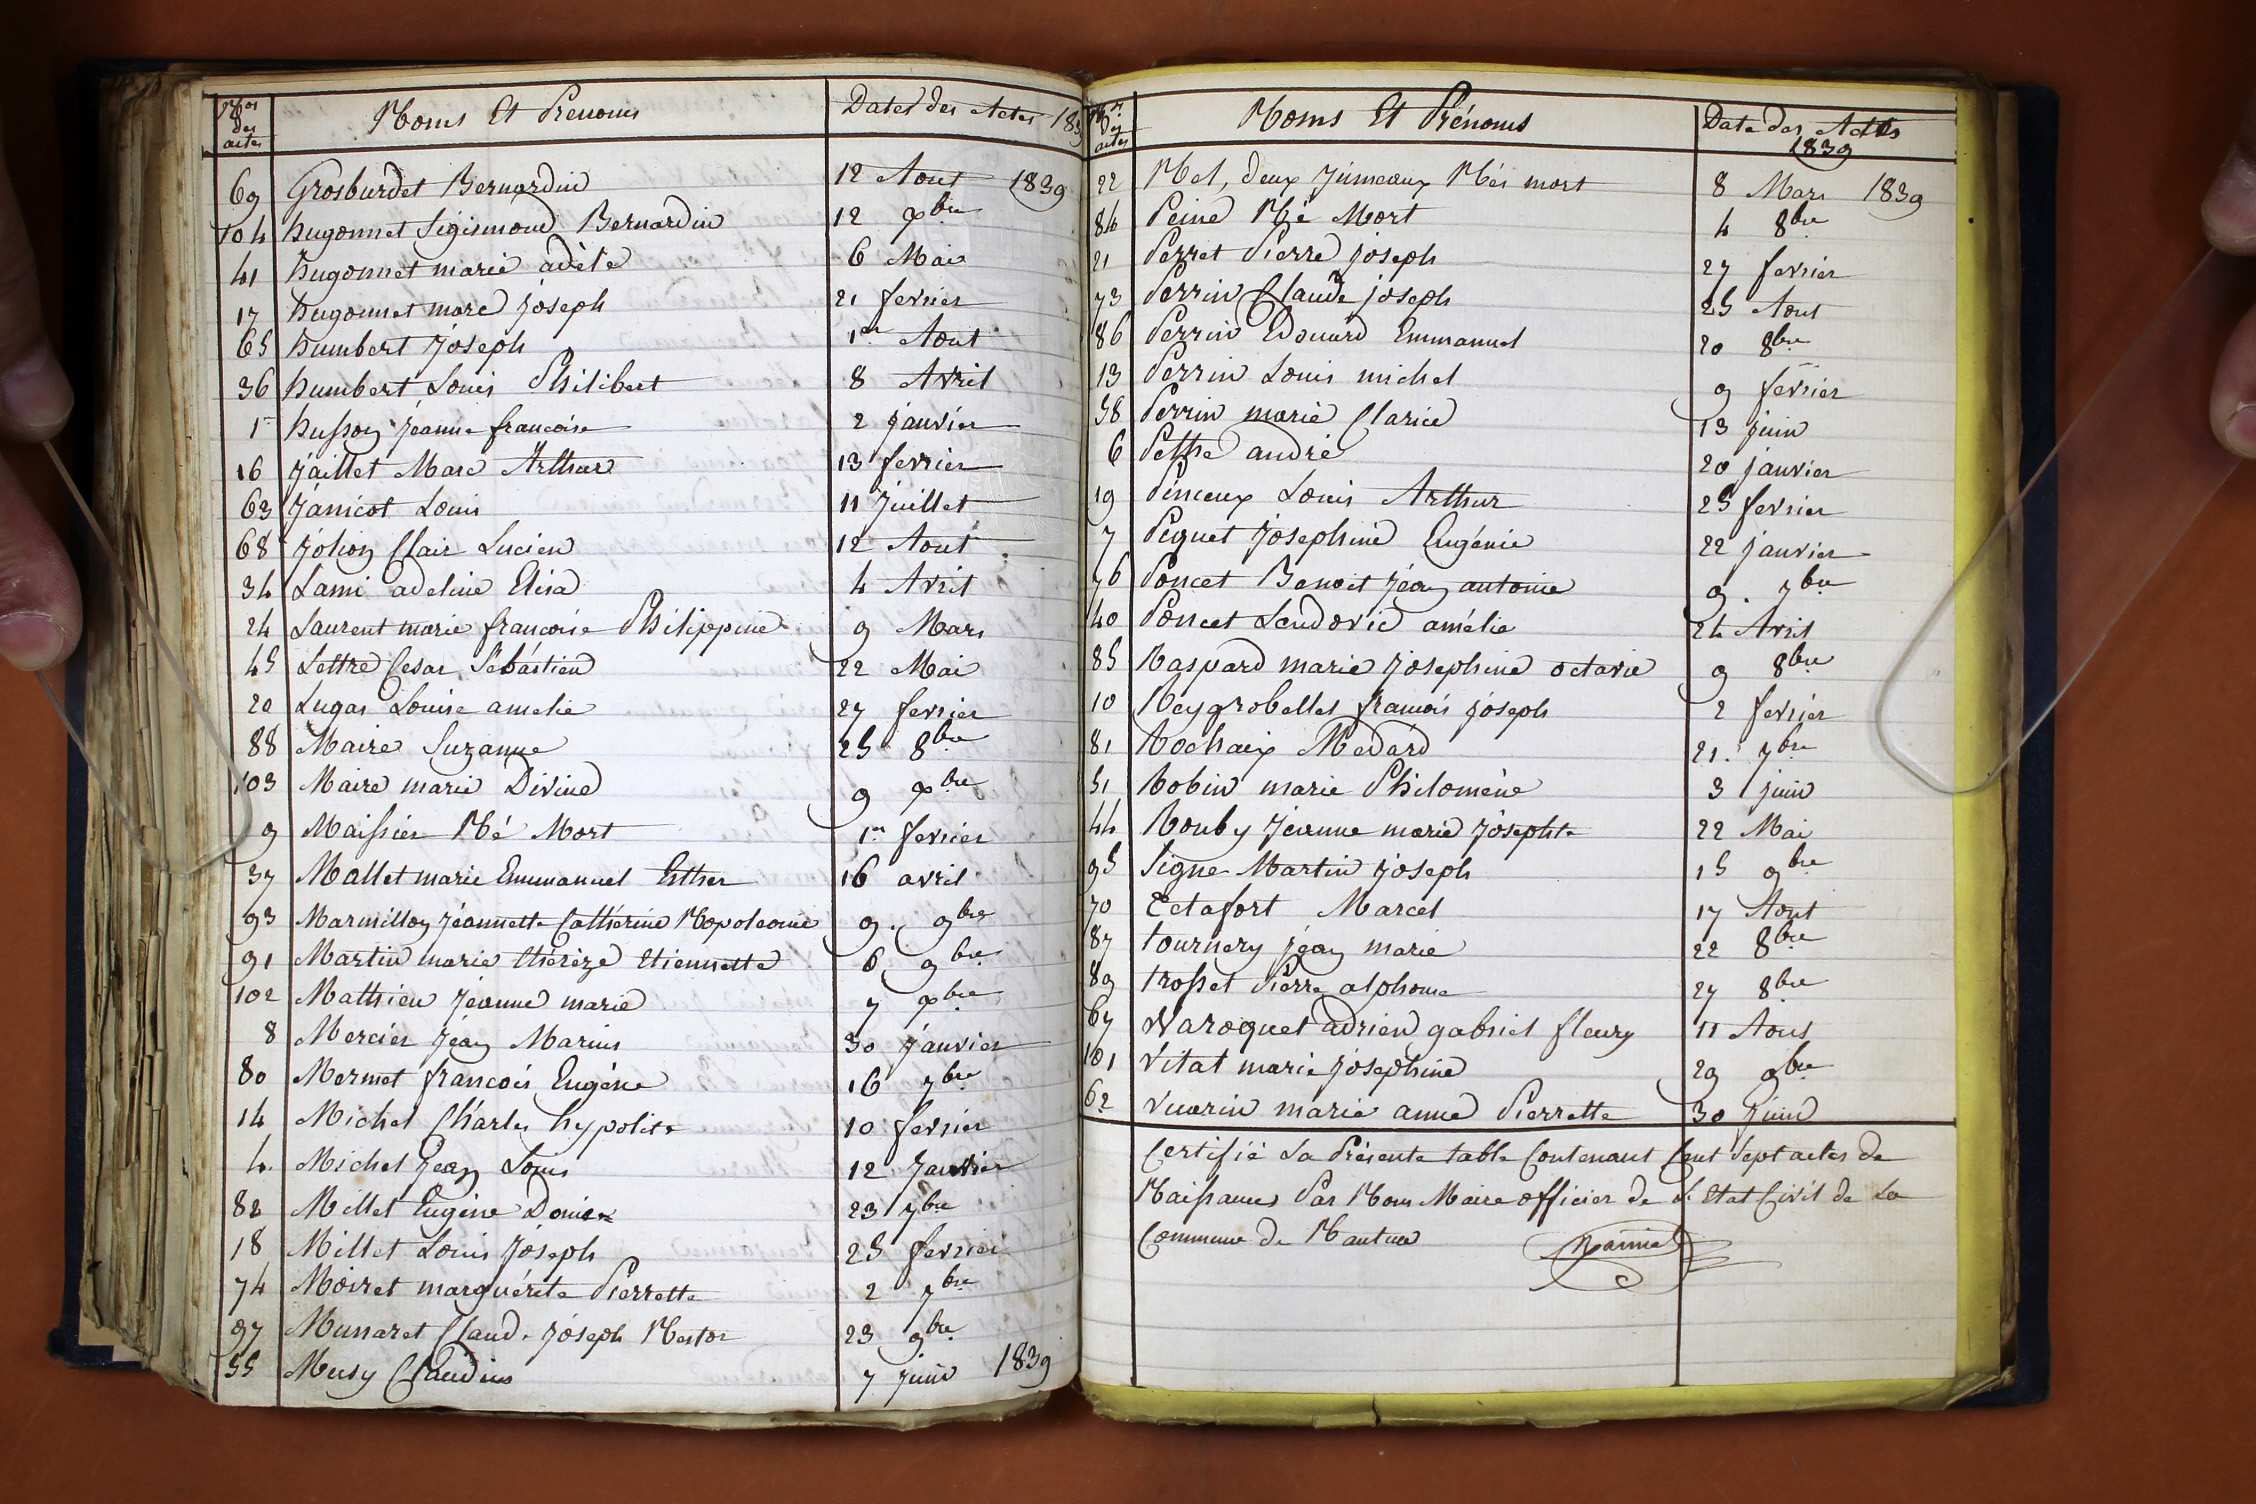 Nos des actes Noms Et Prénoms Dates des Actes 183
69 Grosburdet Bernardin 12 Aout 1839
104 hugonnet Sigismond Bernardin 12 xbre
41 hugonnet marie adèle 6 Mai
17 hugonnet marc joseph 21 fevrier
65 humbert joseph 1er Aout
36 humbert Louis Philibert 8 Avril
1er husson jeanne francoise 2 janvier
16 jaillet Marc Arthur 13 fevrier
63 janicot Louis 11 juillet
68 jolion Clair Lucien 12 Aout
34 Lami adeline Elisa 4 Avril
24 Laurent marie francoise Philippine 9 Mars
45 Lettre Cesar Sébastien 22 Mai
20 Lugas Louise amelie 27 fevrier
88 Maire Suzanne 25 8bre
103 Maire marie Divine 9 xbre
9 Maissier Né Mort 1er fevrier
37 Mallet marie Emmanuel Esther 16 avril
93 Marmillon jeannette Cathérine Napoleonie 9 9bre
91 Martin marie thérèze Etiennette 6 9bre
102 Mathieu jeanne marie 7 xbre
8 Mercier jean Marius 30 janvier
80 Mermet francois Eugène 16 7bre
14 Michel Charles hypolite 10 fevrier
4 Michel jean Louis 12 Janvier
82 Millet Eugène 23 7bre
18 Millet Louis joseph 25 fevrier
74 Moiret marguérite Pierrette 2 7bre
97 Munaret Claud. joseph Nestor 23 9bre
55 Musy Claudius 7 juin 1839
Nos des actes Noms Et Prénoms Date des Actes
1839
22 Nel, deux jumeaux Nés mort 8 Mars 1839
84 Peine Né Mort 4 8bre
21 Perret Pierre joseph 27 fevrier
73 Perrin Claude joseph 25 Aout
86 Perrin Edouard Emmanuel 20 8bre
13 Perrin Louis michel 9 février
58 Perrin marie Clarice 13 juin
6 Pethe andré 20 janvier
19 Pinceux Louis Arthur 25 fevrier
7 Piquet josephine Eugénie 22 janvier
76 Poncet Benoit jean antoine 9 7bre
40 Poncet Lendovic amélie 24 Avril
85 Raspard marie josephine octavie 9 8bre
10 Reygrobellet francois joseph 2 fevrier
81 Rochaix Medard 21 7bre
51 Robin marie Philomène 3 juin
44 Rouby jeanne marie josephte 22 Mai
95 Signe Martin joseph 15 9bre
70 Ectafort Marcel 17 Aout
87 tournery jean marie 22 8bre
89 trosset Pierre alphonse 27 8bre
67 Waroquet adrien gabriel fleury 11 Aout
101 Vital marie josephine 29 9bre
62 Vuarin marie anne Pierrette 30 juin
Certifié La Présente table Contenant Cent Sept actes de
Naissances Par Nous Maire officier de L'Etat Civil de La
Commune de Nantua